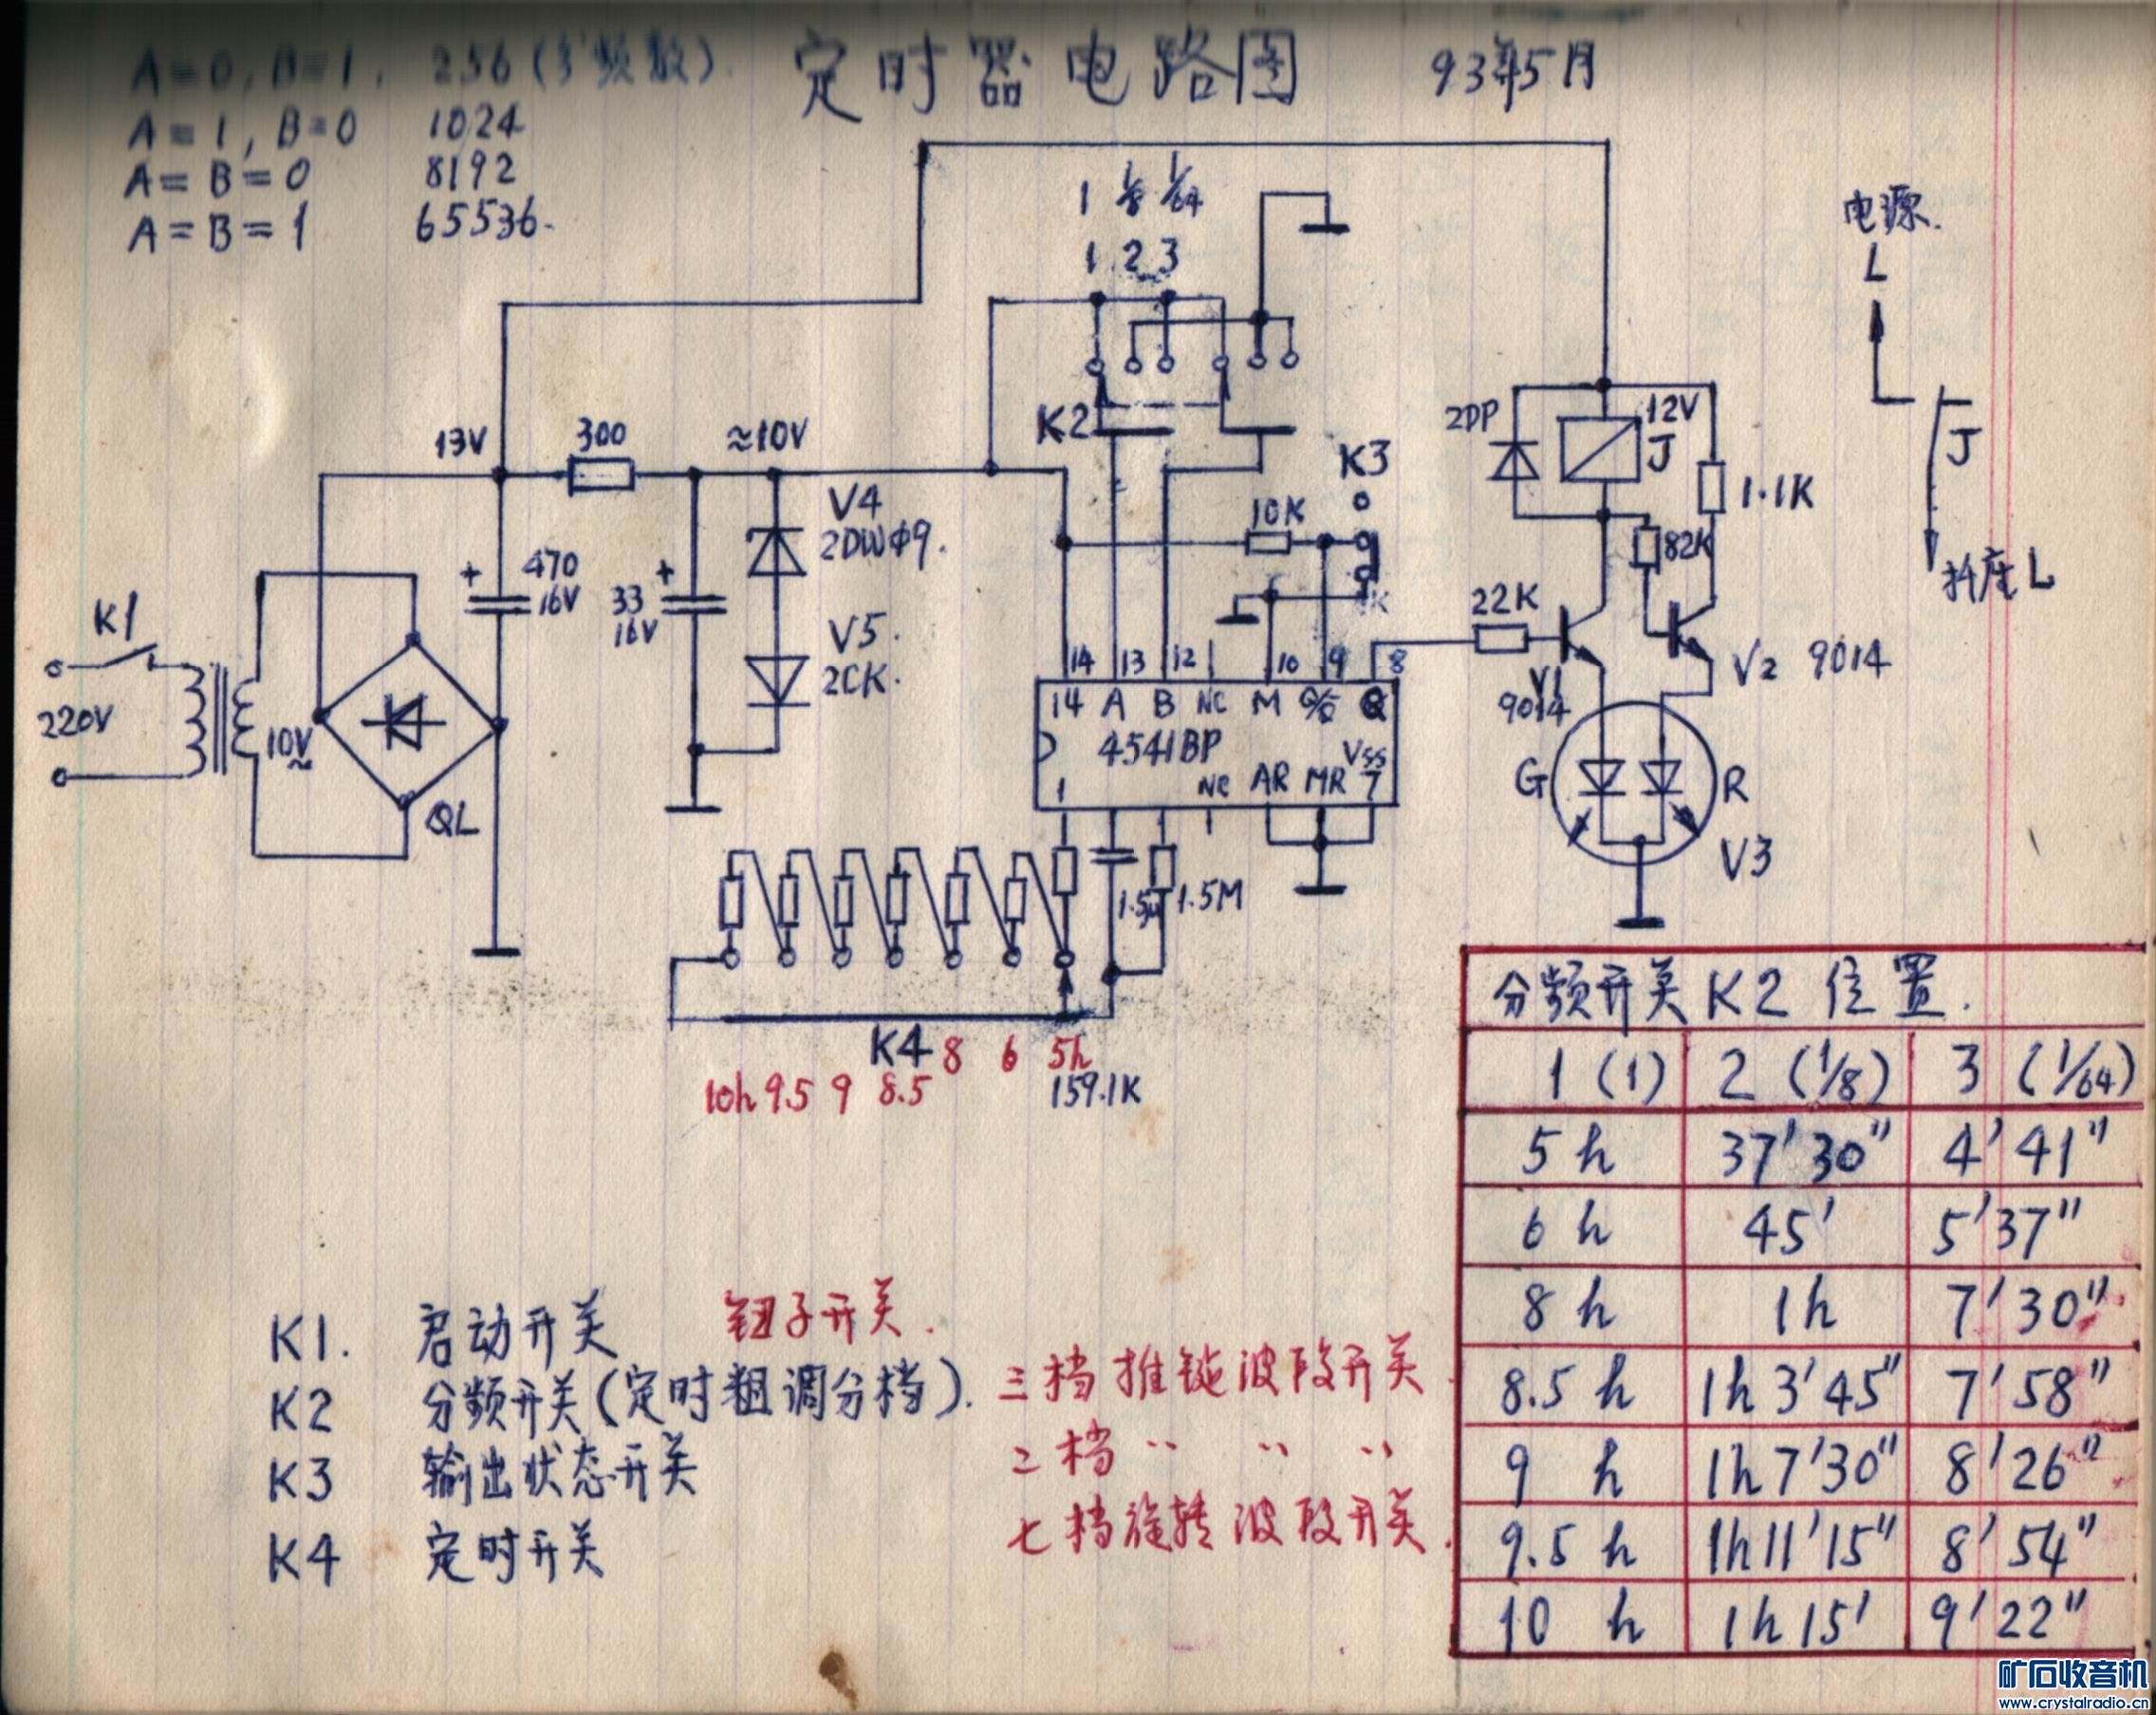 定时器电路图 93年5月
A=0, B=1, 256(分频数)
A=1, B=0 1024
A=B=0 8192
A=B=1 65536.
1 1/8 1/64
1 2 3
电源.
L
J
插座L
K2
K3
13V 300 ≈10V
2DP 12V
J
1.1K
10K
82K
V4
2DWφ9.
+ 470
16V
+ 33
16V
V5.
2CK.
K1
220V
10V~
QL
22K
V1
9014
V2 9014
14 13 12 10 9 8
14 A B NC M Q/Q̅ Q
4541BP
1 NC AR MR VSS
7
G R
V3
1.5μ 1.5M
K4 8 6 5h
10h 9.5 9 8.5
159.1K
分频开关K2 位置.
1 (1) 2 (1/8) 3 (1/64)
5 h 37′30″ 4′41″
6 h 45′ 5′37″
8 h 1h 7′30″
8.5 h 1h 3′45″ 7′58″
9 h 1h 7′30″ 8′26″
9.5 h 1h 11′15″ 8′54″
10 h 1h 15′ 9′22″
K1. 启动开关 钮子开关.
K2 分频开关(定时粗调分档). 三档推键波段开关.
K3 输出状态开关 二档 〃 〃 〃
K4 定时开关 七档旋转波段开关.
矿石收音机
www.crystalradio.cn